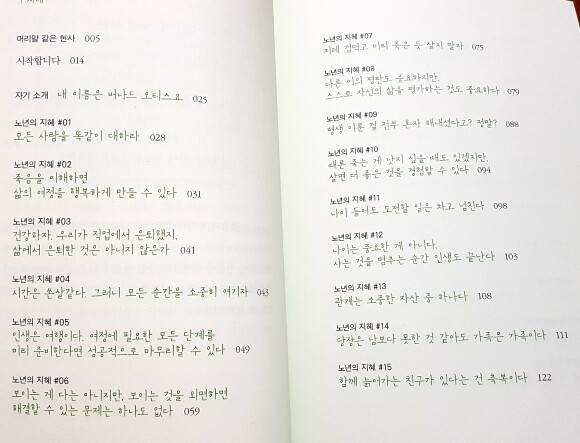 머리말 같은 헌사 005
시작합니다 014
자기 소개 내 이름은 버나드 오티스요 025
노년의 지혜 #01
모든 사람을 똑같이 대하라 028
노년의 지혜 #02
죽음을 이해하면
삶의 여정을 행복하게 만들 수 있다 031
노년의 지혜 #03
건강하자. 우리가 직업에서 은퇴했지,
삶에서 은퇴한 것은 아니지 않은가 041
노년의 지혜 #04
시간은 쏜살같다. 그러니 모든 순간을 소중히 여기자 043
노년의 지혜 #05
인생은 여행이다. 여정에 필요한 모든 단계를
미리 준비한다면 성공적으로 마무리할 수 있다 049
노년의 지혜 #06
보이는 게 다는 아니지만, 보이는 것을 외면하면
해결할 수 있는 문제는 하나도 없다 059
노년의 지혜 #07
지레 겁먹고 이미 죽은 듯 살지 말자 075
노년의 지혜 #08
다른 이의 평판도 중요하지만,
스스로 자신의 삶을 평가하는 것도 중요하다 079
노년의 지혜 #09
평생 이룬 걸 전부 혼자 해내셨다고? 정말? 088
노년의 지혜 #10
때론 죽는 게 낫지 싶을 때도 있겠지만,
살면 더 좋은 것을 경험할 수 있다 094
노년의 지혜 #11
나이 들어도 도전할 일은 차고 넘친다 098
노년의 지혜 #12
나이는 중요한 게 아니다.
사는 것을 멈추는 순간 인생도 끝난다 103
노년의 지혜 #13
관계는 소중한 자산 중 하나다 108
노년의 지혜 #14
당장은 남보다 못한 것 같아도 가족은 가족이다 111
노년의 지혜 #15
함께 늙어가는 친구가 있다는 건 축복이다 122